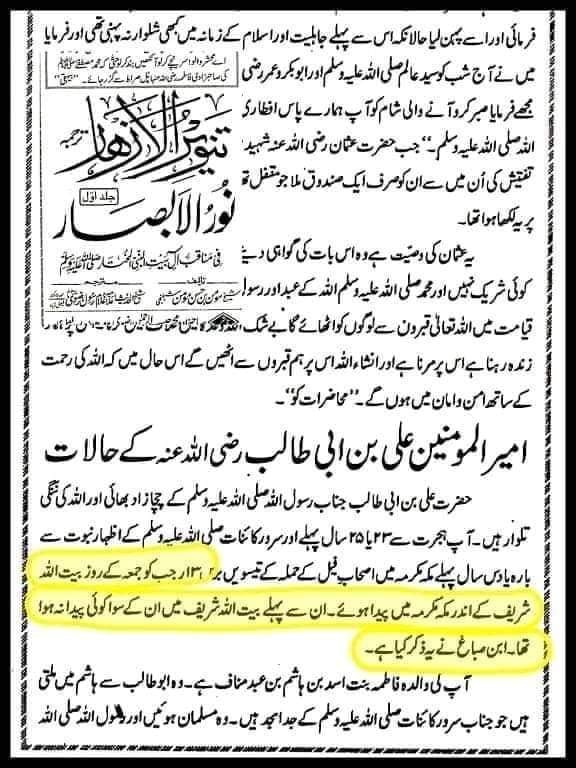 فرمائی اور اسے پہن لیا حالانکہ اس سے پہلے جاہلیت اور اسلام کے زمانہ میں کبھی شلوار نہ پہنی تھی اور فرمایا
میں نے آج شب کو سید عالم صلی اللہ علیہ وسلم اور ابوبکر و عمر رضی
مجھے فرمایا صبر کرو آنے والی شام کو آپ ہمارے پاس افطاری
اللہ صلی اللہ علیہ وسلم۔“ جب حضرت عثمان رضی اللہ عنہ شہید
تفتیش کی اُن میں سے ان کو صرف ایک صندوق ملا جو مقفل
پر یہ لکھا ہوا تھا۔
یہ عثمان کی وصیت ہے وہ اس بات کی گواہی
کوئی شریک نہیں اور محمد صلی اللہ علیہ وسلم اللہ کے عبد اور رسول
تنویر الازہار
ترجمہ
جلد اوّل
نُورُ الابصار
فی مناقب آل بیت النبی المختار
تالیف
مترجم
قیامت میں اللہ تعالیٰ قبروں سے لوگوں کو اٹھائے گا بے شک
زندہ رہنا ہے اس پر مرنا ہے اور انشاء اللہ اس پر ہم قبروں سے اٹھیں گے اس حال میں کہ اللہ کی رحمت
کے ساتھ امن و امان میں ہوں گے۔ ”محاضرات کو“۔
امیر المومنین علی بن ابی طالب رضی اللہ عنہ کے حالات
حضرت علی بن ابی طالب جناب رسول اللہ صلی اللہ علیہ وسلم کے چچا زاد بھائی اور اللہ کی ننگی
تلوار ہیں۔ آپ ہجرت سے ۲۳ یا ۲۵ سال پہلے اور سرور کائنات صلی اللہ علیہ وسلم کے اظہار نبوت سے
بارہ یا دس سال پہلے مکہ مکرمہ میں اصحاب فیل کے حملہ کے تیسویں برس ۱۳ رجب کو جمعہ کے روز بیت اللہ
شریف کے اندر مکہ مکرمہ میں پیدا ہوئے۔ ان سے پہلے بیت اللہ شریف میں ان کے سوا کوئی پیدا نہ ہوا
تھا۔ ابن صباغ نے یہ ذکر کیا ہے۔
آپ کی والدہ فاطمہ بنت اسد بن ہاشم بن عبد مناف ہے۔ وہ ابو طالب سے ہاشم میں ملتی
ہیں جو جناب سرور کائنات صلی اللہ علیہ وسلم کے جد امجد ہیں۔ وہ مسلمان ہوئیں اور رسول اللہ صلی اللہ